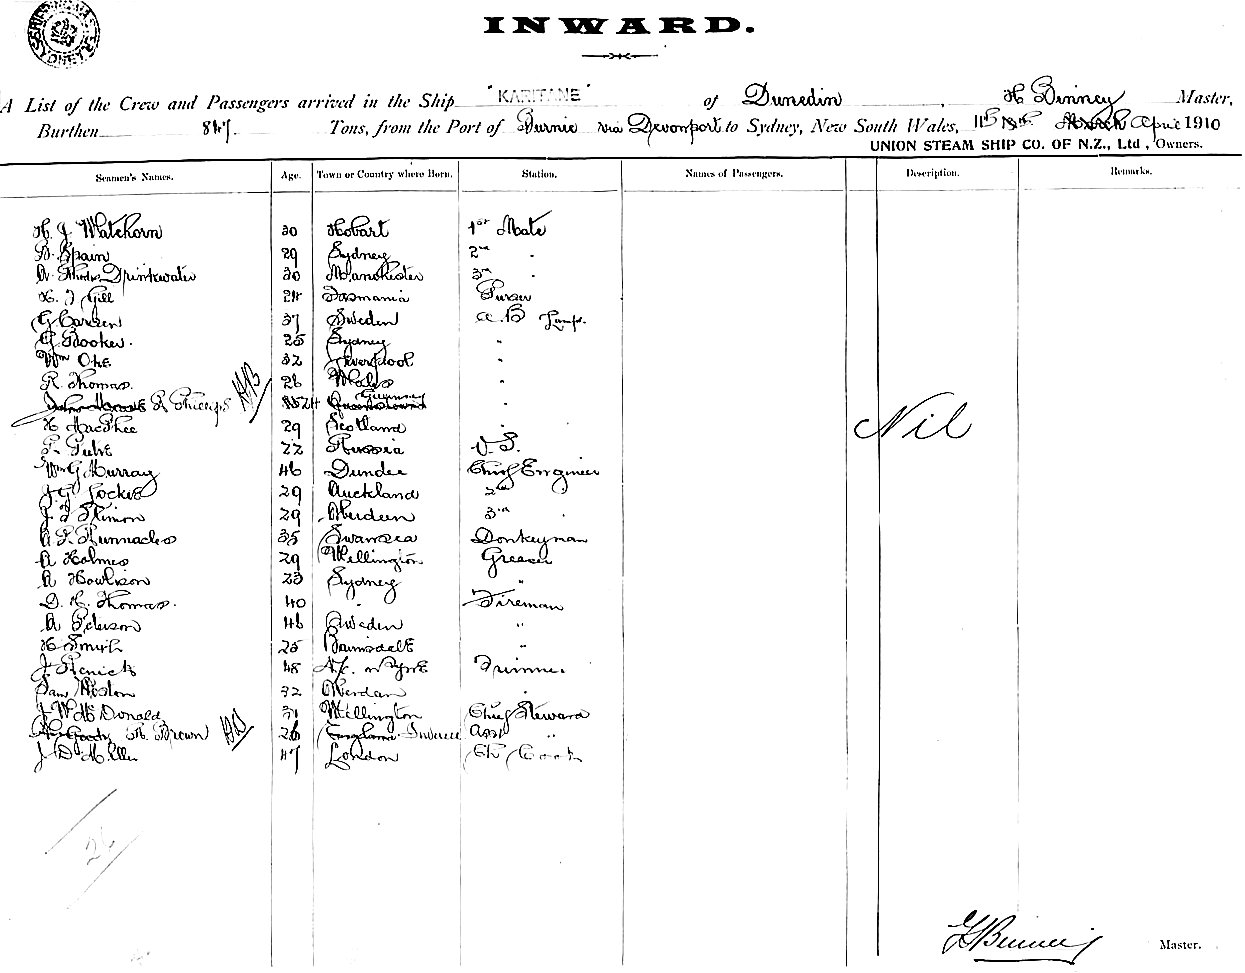 INWARD.
A List of the Crew and Passengers arrived in the Ship "KARITANE" of Dunedin, H Binney Master,
Burthen 847. Tons, from the Port of Burnie via Devonport to Sydney, New South Wales, 11th April 1910
UNION STEAM SHIP CO. OF N.Z., Ltd, Owners.
Seamen's Names. Age. Town or Country where Born. Station. Names of Passengers. Description. Remarks.
H. J Watchorn 30 Hobart 1st Mate
D. Spain 29 Sydney 2nd "
A. Drinkwater 30 Manchester 3rd "
H. J Gill 24 Tasmania Purser
G Carsen 37 Sweden A.B Lamps.
G. Hooker. 25 Sydney "
Wm Oke 32 Liverpool "
R. Thomas. 26 Wales "
R Phillips 24 Guernsey
H MacPhee 29 Scotland
22 Russia O.S.
Wm G Murray 46 Dundee Chief Engineer
J. G. Lockie 29 Auckland 2nd "
J. 29 Aberdeen 3rd "
35 Swansea Donkeyman
A Holmes 29 Wellington Greaser
A Howlison 23 Sydney "
D. H. Thomas. 40 " Fireman
A Pederson 46 Sweden "
H Smyth 25 Bairnsdale "
J. 48 Trimmer
Sam Weston 32 Aberdeen "
J W McDonald 31 Wellington Chief Steward
A. Brown 26 Asst "
J. D Miller 47 London Ch Cook
Nil
26
H Binney Master.